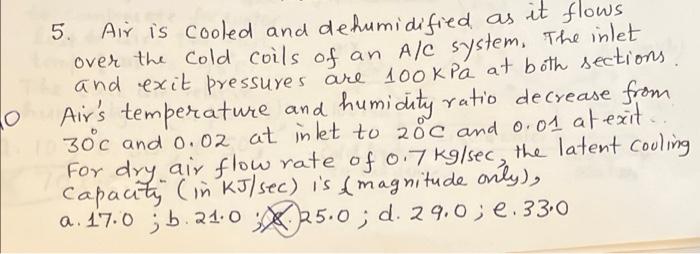 5. Air is cooled and dehumidified as it flows
over the cold coils of an A/C system. The inlet
and exit pressures are 100 kPa at both sections.
10 Air's temperature and humidity ratio decrease from
30°c and 0.02 at inlet to 20°C and 0.01 at exit.
For dry air flow rate of 0.7 kg/sec, the latent cooling
capacity (in KJ/sec) is (magnitude only),
a. 17.0 ; b. 21.0 ; c. 25.0 ; d. 29.0 ; e. 33.0